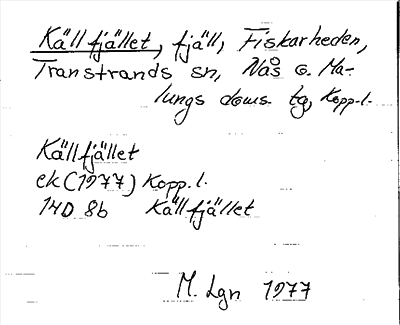 Källfjället, fjäll, Fiskarheden,
Transtrands sn, Nås o. Ma-
lungs doms. tg, Kopp.l.
Källfjället
ek (1977) Kopp.l.
14D 8b Källfjället
M. Lgn 1977